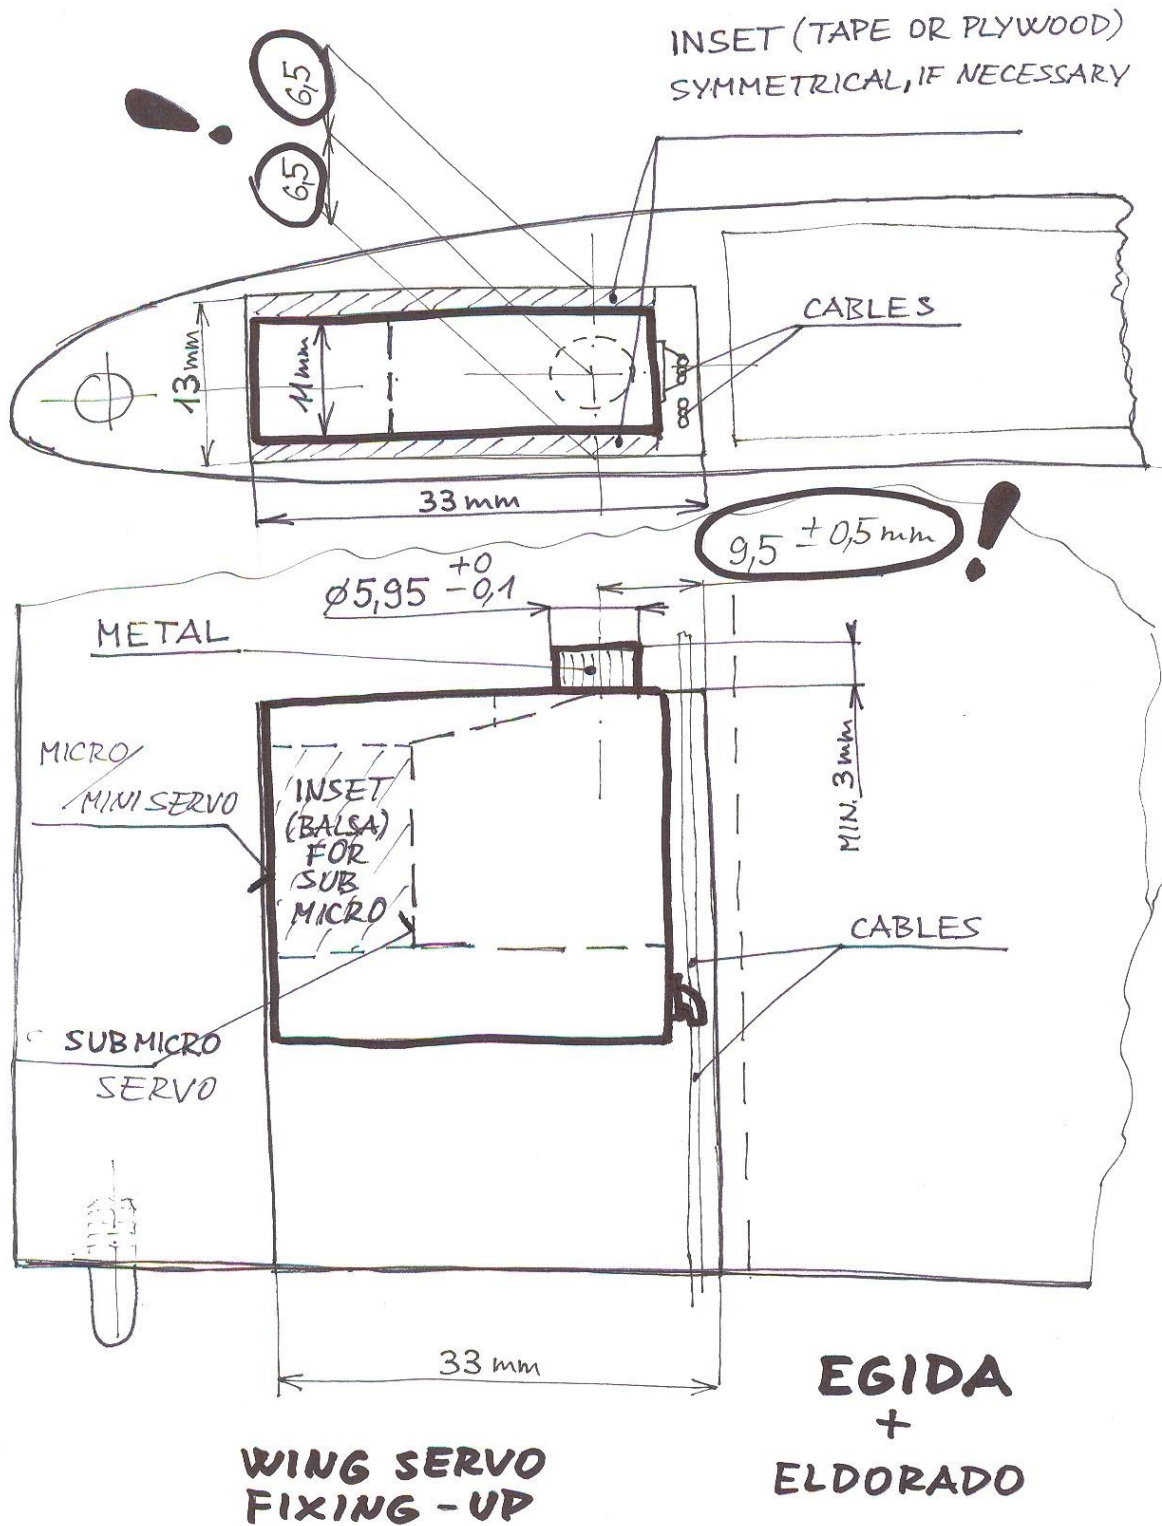 INSET (TAPE OR PLYWOOD)
SYMMETRICAL, IF NECESSARY
6,5
6,5
!
CABLES
13mm
11mm
33mm
9,5 ± 0,5mm
!
ø5,95 +0 -0,1
METAL
MICRO/
/MINISERVO
INSET
(BALSA)
FOR
SUB
MICRO
MIN. 3mm
CABLES
SUBMICRO
SERVO
33mm
EGIDA
+
ELDORADO
WING SERVO
FIXING-UP